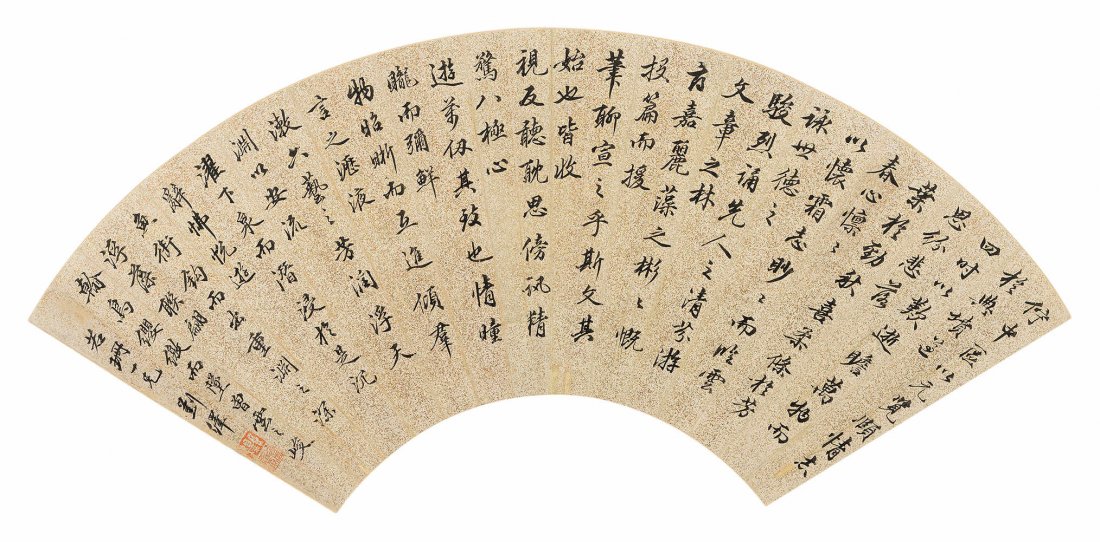 佇中區以元覽頤情志
於典墳遵
四時以歎逝瞻萬物而
思紛悲落
葉於勁秋喜柔條於芳
春心懍〻
以懷霜志眇〻而臨雲
詠世德之
駿烈誦先人之清芬游
文章之林
府嘉麗藻之彬〻慨
投篇而援
筆聊宣之乎斯文其
始也皆收
視反聽耽思傍訊精
鶩八極心
遊萬仞其致也情曈
曨而彌鮮
物昭晰而互進傾群
言之瀝液
漱六藝之芳潤浮天
淵以安流
濯下泉而潛浸於是沉
辭怫悅
魚銜鉤而出重淵之深
浮藻聯翩
翰鳥纓繳而墜曾雲之峻
若珊一兄 劉繹